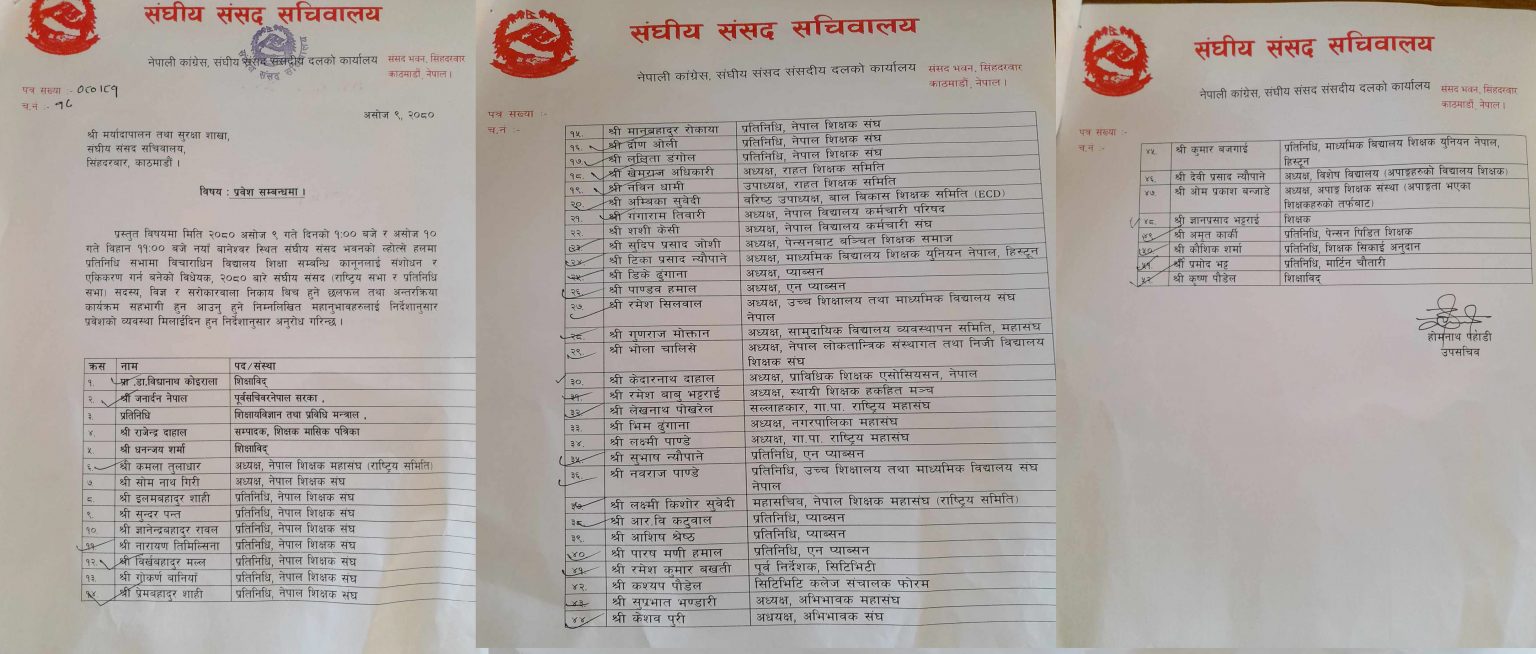 संघीय संसद सचिवालय
नेपाली कांग्रेस, संघीय संसद संसदीय दलको कार्यालय
संसद भवन, सिंहदरवार
काठमाडौं, नेपाल।
पत्र सख्या :- ०८०।८१
च.नं :- १८
असोज ९, २०८०
श्री मर्यादापालन तथा सुरक्षा शाखा,
संघीय संसद सचिवालय,
सिंहदरवार, काठमाडौं ।
विषय : प्रवेश सम्बन्धमा ।
प्रस्तुत विषयमा मिति २०८० असोज ९ गते दिनको १:०० बजे र असोज १०
गते विहान ११:०० बजे नयाँ बानेश्वर स्थित संघीय संसद भवनको ल्होत्से हलमा
प्रतिनिधि सभामा विचाराधिन विद्यालय शिक्षा सम्बन्धि कानूनलाई संशोधन र
एकिकरण गर्न बनेको विधेयक, २०८० बारे संघीय संसद (राष्ट्रिय सभा र प्रतिनिधि
सभा) सदस्य, विज्ञ र सरोकारवाला निकाय बिच हुने छलफल तथा अन्तरक्रिया
कार्यक्रम सहभागी हुन आउनु हुने निम्नलिखित महानुभावहरुलाई निर्देशानुसार
प्रवेशको व्यवस्था मिलाईदिन हुन निर्देशानुसार अनुरोध गरिन्छ ।
क्रस नाम पद/संस्था
१. प्रा .डा.विद्यानाथ कोइराला शिक्षाविद्
२. श्री जनार्दन नेपाल पूर्वसचिवरनेपाल सरका ,
३. प्रतिनिधि शिक्षायविज्ञान तथा प्रविधि मन्त्राल ,
४. श्री राजेन्द्र दाहाल सम्पादक, शिक्षक मासिक पत्रिका
५. श्री धनन्जय शर्मा शिक्षाविद्
६. श्री कमला तुलाधार अध्यक्ष, नेपाल शिक्षक महासंघ (राष्ट्रिय समिति)
७ श्री सोम नाथ गिरी अध्यक्ष, नेपाल शिक्षक संघ
८. श्री इलमबहादुर शाही प्रतिनिधि, नेपाल शिक्षक संघ
९. श्री सुन्दर पन्त प्रतिनिधि, नेपाल शिक्षक संघ
१० श्री ज्ञानेन्द्रबहादुर रावल प्रतिनिधि, नेपाल शिक्षक संघ
११ श्री नारायण तिमिल्सिना प्रतिनिधि, नेपाल शिक्षक संघ
१२. श्री विर्खबहादुर मल्ल प्रतिनिधि, नेपाल शिक्षक संघ
१३. श्री गोकर्ण बानियाँ प्रतिनिधि, नेपाल शिक्षक संघ
१४. श्री प्रेमबहादुर शाही प्रतिनिधि, नेपाल शिक्षक संघ
संघीय संसद सचिवालय
नेपाली कांग्रेस, संघीय संसद संसदीय दलको कार्यालय
संसद भवन, सिंहदरवार
काठमाडौं, नेपाल।
पत्र सख्या :-
च.नं :-
१५. श्री मानबहादुर रोकाया प्रतिनिधि, नेपाल शिक्षक संघ
१६. श्री द्रोण ओली प्रतिनिधि, नेपाल शिक्षक संघ
१७. श्री ललिता डंगोल प्रतिनिधि, नेपाल शिक्षक संघ
१८. श्री खेमराज अधिकारी अध्यक्ष, राहत शिक्षक समिति
१९. श्री नविन धामी उपाध्यक्ष, राहत शिक्षक समिति
२०. श्री अम्बिका सुवेदी वरिष्ठ उपाध्यक्ष, बाल बिकास शिक्षक समिति (ECD)
२१. श्री गंगाराम तिवारी अध्यक्ष, नेपाल विद्यालय कर्मचारी परिषद
२२. श्री शशी केसी अध्यक्ष, नेपाल विद्यालय कर्मचारी संघ
२३. श्री सुदिप प्रसाद जोशी अध्यक्ष, पेन्सनबाट बञ्चित शिक्षक समाज
२४. श्री टिका प्रसाद न्यौपाने अध्यक्ष, माध्यमिक बिद्यालय शिक्षक युनियन नेपाल, हिस्टून
२५. श्री डिके ढुंगाना अध्यक्ष, प्याब्सन
२६. श्री पाण्डव हमाल अध्यक्ष, एन प्याब्सन
२७. श्री रमेश सिलवाल अध्यक्ष, उच्च शिक्षालय तथा माध्यमिक विद्यालय संघ
नेपाल
२८. श्री गुणराज मोक्तान अध्यक्ष, सामुदायिक विद्यालय व्यवस्थापन समिति, महासंघ
२९. श्री भोला चालिसे अध्यक्ष, नेपाल लोकतान्त्रिक संस्थागत तथा निजी विद्यालय
शिक्षक संघ
३०. श्री केदारनाथ दाहाल अध्यक्ष, प्राविधिक शिक्षक एसोसियसन, नेपाल
३१. श्री रमेश बाबु भट्टराई अध्यक्ष, स्थायी शिक्षक हकहित मञ्च
३२ श्री लेखनाथ पोखरेल सल्लाहकार, गा.पा. राष्ट्रिय महासंघ
३३. श्री भिम ढुंगाना अध्यक्ष, नगरपालिका महासंघ
३४. श्री लक्ष्मी पाण्डे अध्यक्ष, गा.पा. राष्ट्रिय महासंघ
३५ श्री सुभाष न्यौपाने प्रतिनिधि, एन प्याब्सन
३६. श्री नवराज पाण्डे प्रतिनिधि, उच्च शिक्षालय तथा माध्यमिक विद्यालय संघ
नेपाल
३७ श्री लक्ष्मी किशोर सुवेदी महासचिव, नेपाल शिक्षक महासंघ (राष्ट्रिय समिति)
३८ श्री आर.वि कटुवाल प्रतिनिधि, प्याब्सन
३९. श्री आशिष श्रेष्ठ प्रतिनिधि, प्याब्सन
४० श्री पारष मणी हमाल प्रतिनिधि, एन प्याब्सन
४१ श्री रमेश कुमार बखती पूर्व निर्देशक, सिटिभिटी
४२. श्री कश्यप पौडेल सिटिभिटि कलेज संचालक फोरम
४३ श्री सुप्रभात भण्डारी अध्यक्ष, अभिभावक महासंघ
४४ श्री केशव पुरी अधयक्ष, अभिभावक संघ
संघीय संसद सचिवालय
नेपाली कांग्रेस, संघीय संसद संसदीय दलको कार्यालय
संसद भवन, सिंहदरवार
काठमाडौं, नेपाल।
पत्र सख्या :-
च.नं :-
४५ श्री कुमार बजगाई प्रतिनिधि, माध्यमिक बिद्यालय शिक्षक युनियन नेपाल,
हिस्टून
४६. श्री देवी प्रसाद न्यौपाने अध्यक्ष, विशेष विद्यालय (अपाङ्गहरुको विद्यालय शिक्षक)
४७ श्री ओम प्रकाश बन्जाडे अध्यक्ष, अपाङ्ग शिक्षक संस्था (अपाङ्गता भएका
शिक्षकहरुको तर्फबाट)
४८. श्री ज्ञानप्रसाद भट्टराई शिक्षक
४९ श्री अमृत कार्की प्रतिनिधि, पेन्सन पिडित शिक्षक
५० श्री कौशिक शर्मा प्रतिनिधि, शिक्षक सिकाई अनुदान
५१ श्री प्रमोद भट्ट प्रतिनिधि, मार्टिन चौतारी
५२ श्री कृष्ण पौडेल शिक्षाविद्
होमनाथ पहाडी
उपसचिव